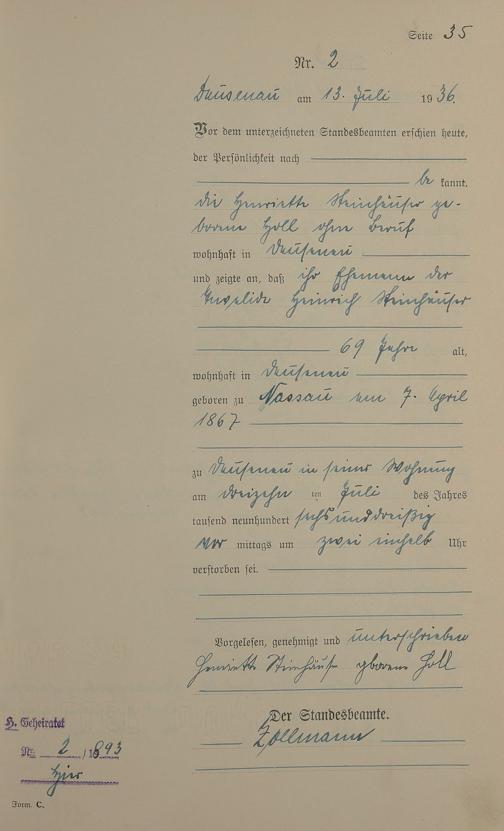 Seite 35
Nr. 2
Dausenau am 13. Juli 1936.
Vor dem unterzeichneten Standesbeamten erschien heute,
der Persönlichkeit nach
be kannt,
die Henriette Steinhäuser ge-
borene Holl ohne Beruf
wohnhaft in Dausenau
und zeigte an, daß ihr Ehemann der
Invalide Heinrich Steinhäuser
69 Jahre alt,
wohnhaft in Dausenau
geboren zu Nassau am 7. April
1867
zu Dausenau in seiner Wohnung
am dreizehn ten Juli des Jahres
tausend neunhundert sechsunddreißig
vor mittags um zwei einhalb Uhr
verstorben sei.
Vorgelesen, genehmigt und unterschrieben
Henriette Steinhäuser geborene Holl
Der Standesbeamte.
Zollmann
H. Geheiratet
Nr. 2 / 1893
hier
Form. C.